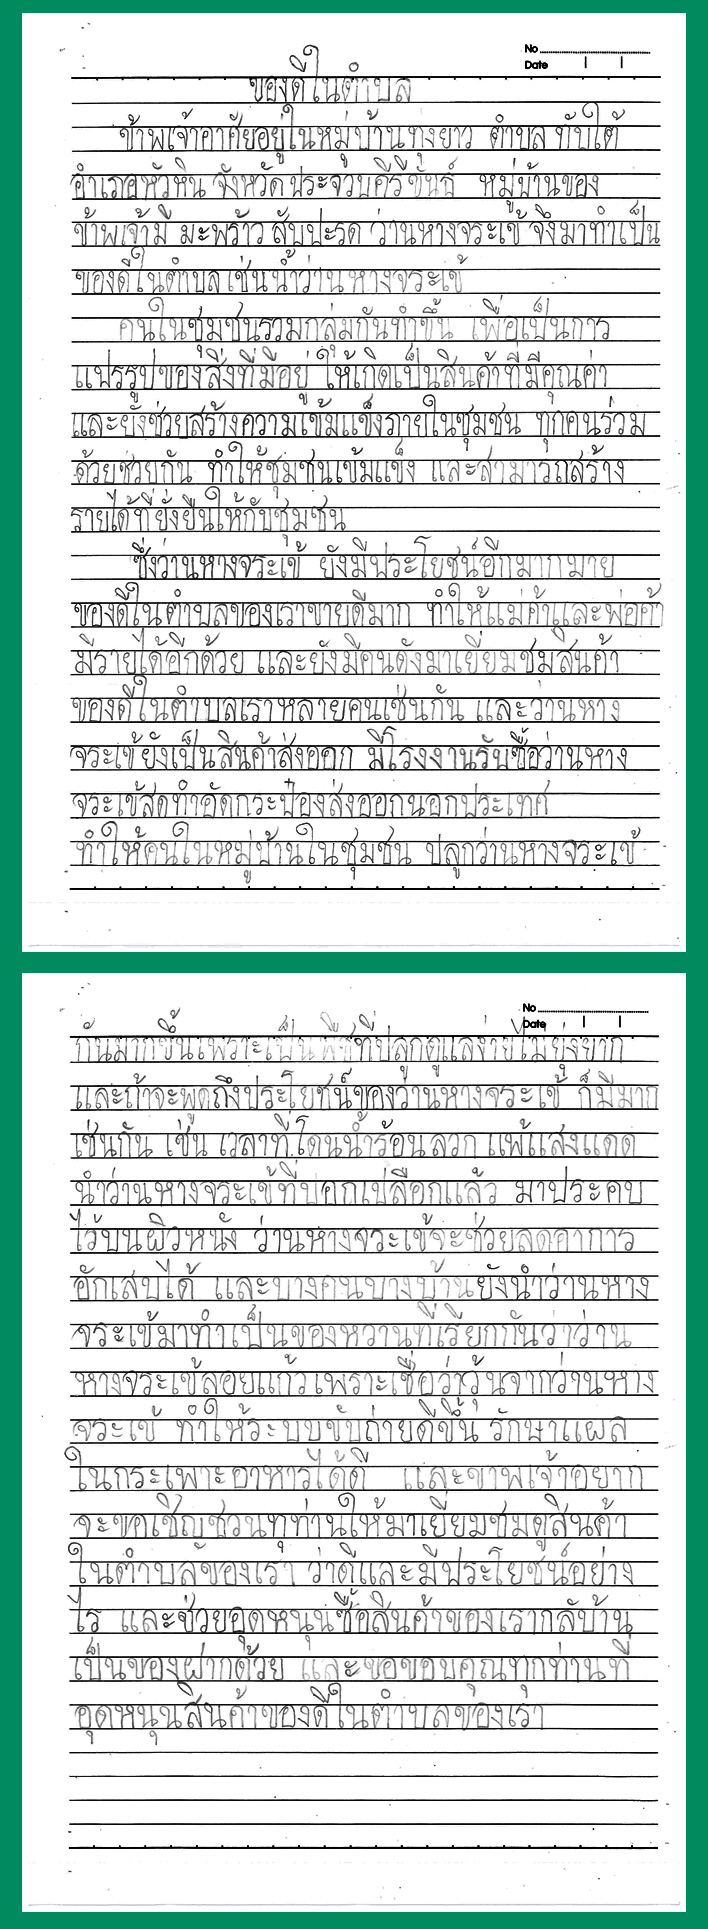 No
Date
ของดีในตำบล
ข้าพเจ้าอาศัยอยู่ในหมู่บ้านทุ่งยาว ตำบล ทับใต้
อำเภอหัวหิน จังหวัดประจวบคีรีขันธ์ หมู่บ้านของ
ข้าพเจ้ามี มะพร้าว สับปะรด ว่านหางจระเข้ จึงมาทำเป็น
ของดีในตำบล เช่นน้ำว่านหางจระเข้
คนในชุมชนรวมกลุ่มกันทำขึ้น เพื่อเป็นการ
แปรรูปของสิ่งที่มีอยู่ ให้เกิดเป็นสินค้าที่มีคุณค่า
และยังช่วยสร้างความเข้มแข็งรายในชุมชน ทุกคนร่วม
ด้วยช่วยกัน ทำให้ชุมชนเข้มแข็ง และสามารถสร้าง
รายได้ที่ยั่งยืนให้กับชุมชน
ซึ่งว่านหางจระเข้ ยังมีประโยชน์อีกมากมาย
ของดีในตำบลของเราขายดีมาก ทำให้แม่ค้าและพ่อค้า
มีรายได้อีกด้วย และยังมีคนดังมาเยี่ยมชมสินค้า
ของดีในตำบลเราหลายคนเช่นกัน และว่านหาง
จระเข้ยังเป็นสินค้าส่งออก มีโรงงานรับซื้อว่านหาง
จระเข้สดทำอัดกระป๋องส่งออกนอกประเทศ
ทำให้คนในหมู่บ้านในชุมชน ปลูกว่านหางจระเข้
No
Date
กันมากขึ้นเพราะเป็นพืชที่ปลูกดูแลง่ายไม่ยุ่งยาก
และถ้าจะพูดถึงประโยชน์ของว่านหางจระเข้ ก็มีมาก
เช่นกัน เช่น เวลาที่โดนน้ำร้อนลวก แพ้แสงแดด
นำว่านหางจระเข้ที่ปอกเปลือกแล้ว มาประคบ
ไว้บนผิวหนัง ว่านหางจระเข้จะช่วยลดอาการ
อักเสบได้ และบางคนบางบ้านยังนำว่านหาง
จระเข้มาทำเป็นของหวานที่เรียกกันว่าว่าน
หางจระเข้ลอยแก้วเพราะเชื่อว่าวุ้นจากว่านหาง
จระเข้ ทำให้ระบบขับถ่ายดีขึ้น รักษาแผล
ในกระเพาะอาหารได้ดี และข้าพเจ้าอยาก
จะขอเชิญชวนทุท่านให้มาเยี่ยมชมดูสินค้า
ในตำบลของเรา ว่าดีและมีประโยชน์อย่าง
ไร และช่วยอุดหนุนซื้อสินค้าของเรากลับบ้าน
เป็นของฝากด้วย และขอขอบคุณทุกท่านที่
อุดหนุนสินค้าของดีในตำบลของเรา